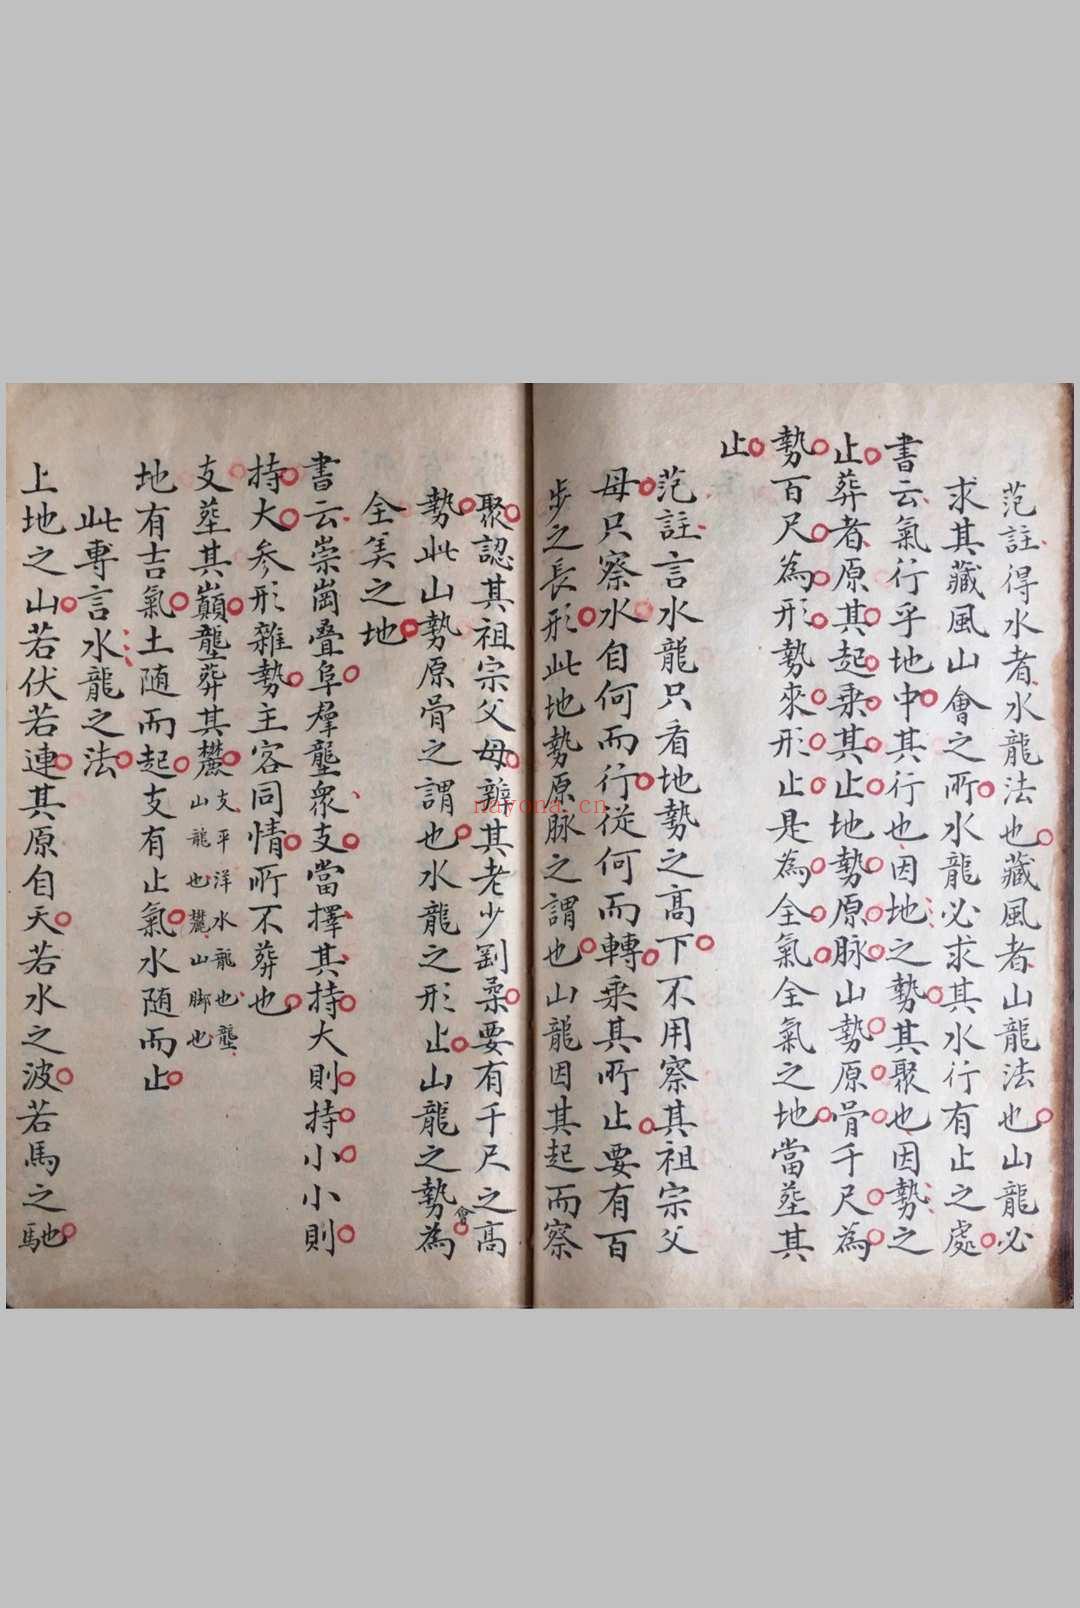 范註得水者水龍法也藏風者山龍法也山龍必
求其藏風山會之所水龍必求其水行有止之處
書云氣行乎地中其行也因地之勢其聚也因勢之
止葬者原其起乘其止地勢原脉山勢原骨千尺為
勢百尺為形勢來形止是為全氣全氣之地當塟其
止
范註言水龍只看地勢之高下不用察其祖宗父
母只察水自何而行從何而轉乘其所止要有百
步之長形此地勢原脉之謂也山龍因其起而察
聚認其祖宗父母辨其老少劉桑要有千尺之高
勢此山勢原骨之謂也水龍之形止山龍之勢為
會
全美之地
書云崇崗叠阜羣壟衆支當擇其持大則持小小則
持大參形雜勢主客同情所不葬也
支塟其巔壟葬其麓
支平洋水龍也壟
山龍也麓山脚也
地有吉氣土随而起支有止氣水随而止
此專言水龍之法
上地之山若伏若連其原自天若水之波若馬之馳
nayona.cn